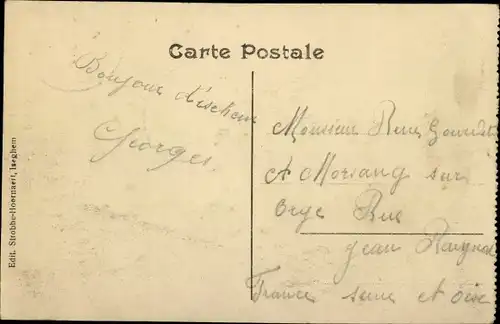 Carte Postale
Bonjour d'iseghem
Georges
Monsieur René
A Morsang sur
Orge Rue
Jean Raynal
France seine et oise
Edit. Strobbe-Hoornaert, Iseghem